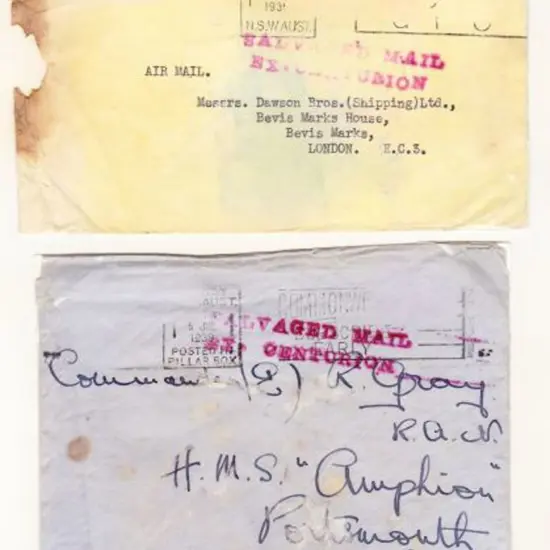 193
N.S.W.AUST.
SALVAGED MAIL
EX. CENTURION
AIR MAIL.
Messrs. Dawson Bros.(Shipping)Ltd.,
Bevis Marks House,
Bevis Marks,
LONDON. E.C.3.
AUST.
COMMONW
POSTED IN
PILLAR BOX
SALVAGED MAIL
EX. CENTURION
Commander (E) K. Gray
R.A.N.
H.M.S. "Amphion"
Portsmouth